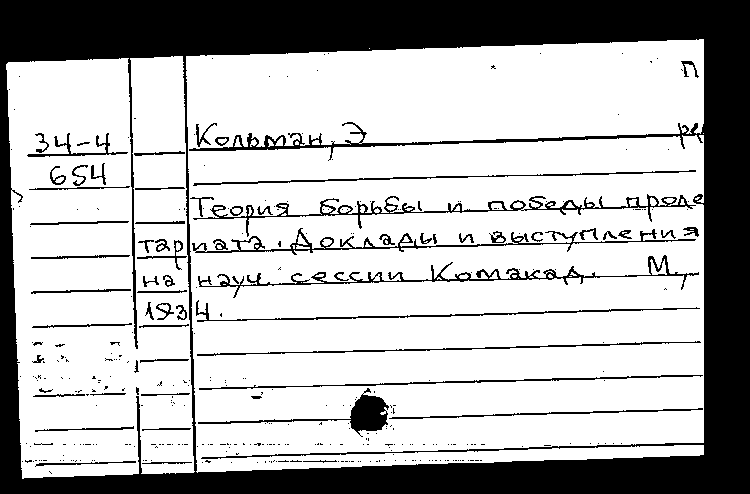 П
34-4 Кольман, Э ре
654
Теория борьбы и победы проле
тариата. Доклады и выступления
на науч. сессии Комакад. М.,
1934.